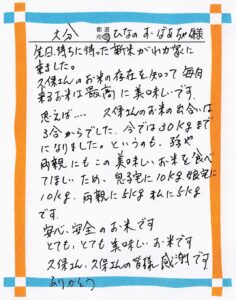 大分 都道府県 ひなのおばあちゃん様
先日、待ちに待った新米がわが家に
来ました。
久保さんのお米の存在を知って毎月
来るお米は最高に美味しいです。
思えば…. 久保さんのお米の出合いは
3合からでした。今では30kgまで
になりました。というのも、孫や
両親にもこの美味しいお米を食べ
てほしいため、息子宅に10kg 娘宅に
10kg、両親に5kg 私に5kg
です。
安心、安全のお米です
とても、とても美味しいお米です
久保さん、久保さんの皆様 感謝です
ありがとう